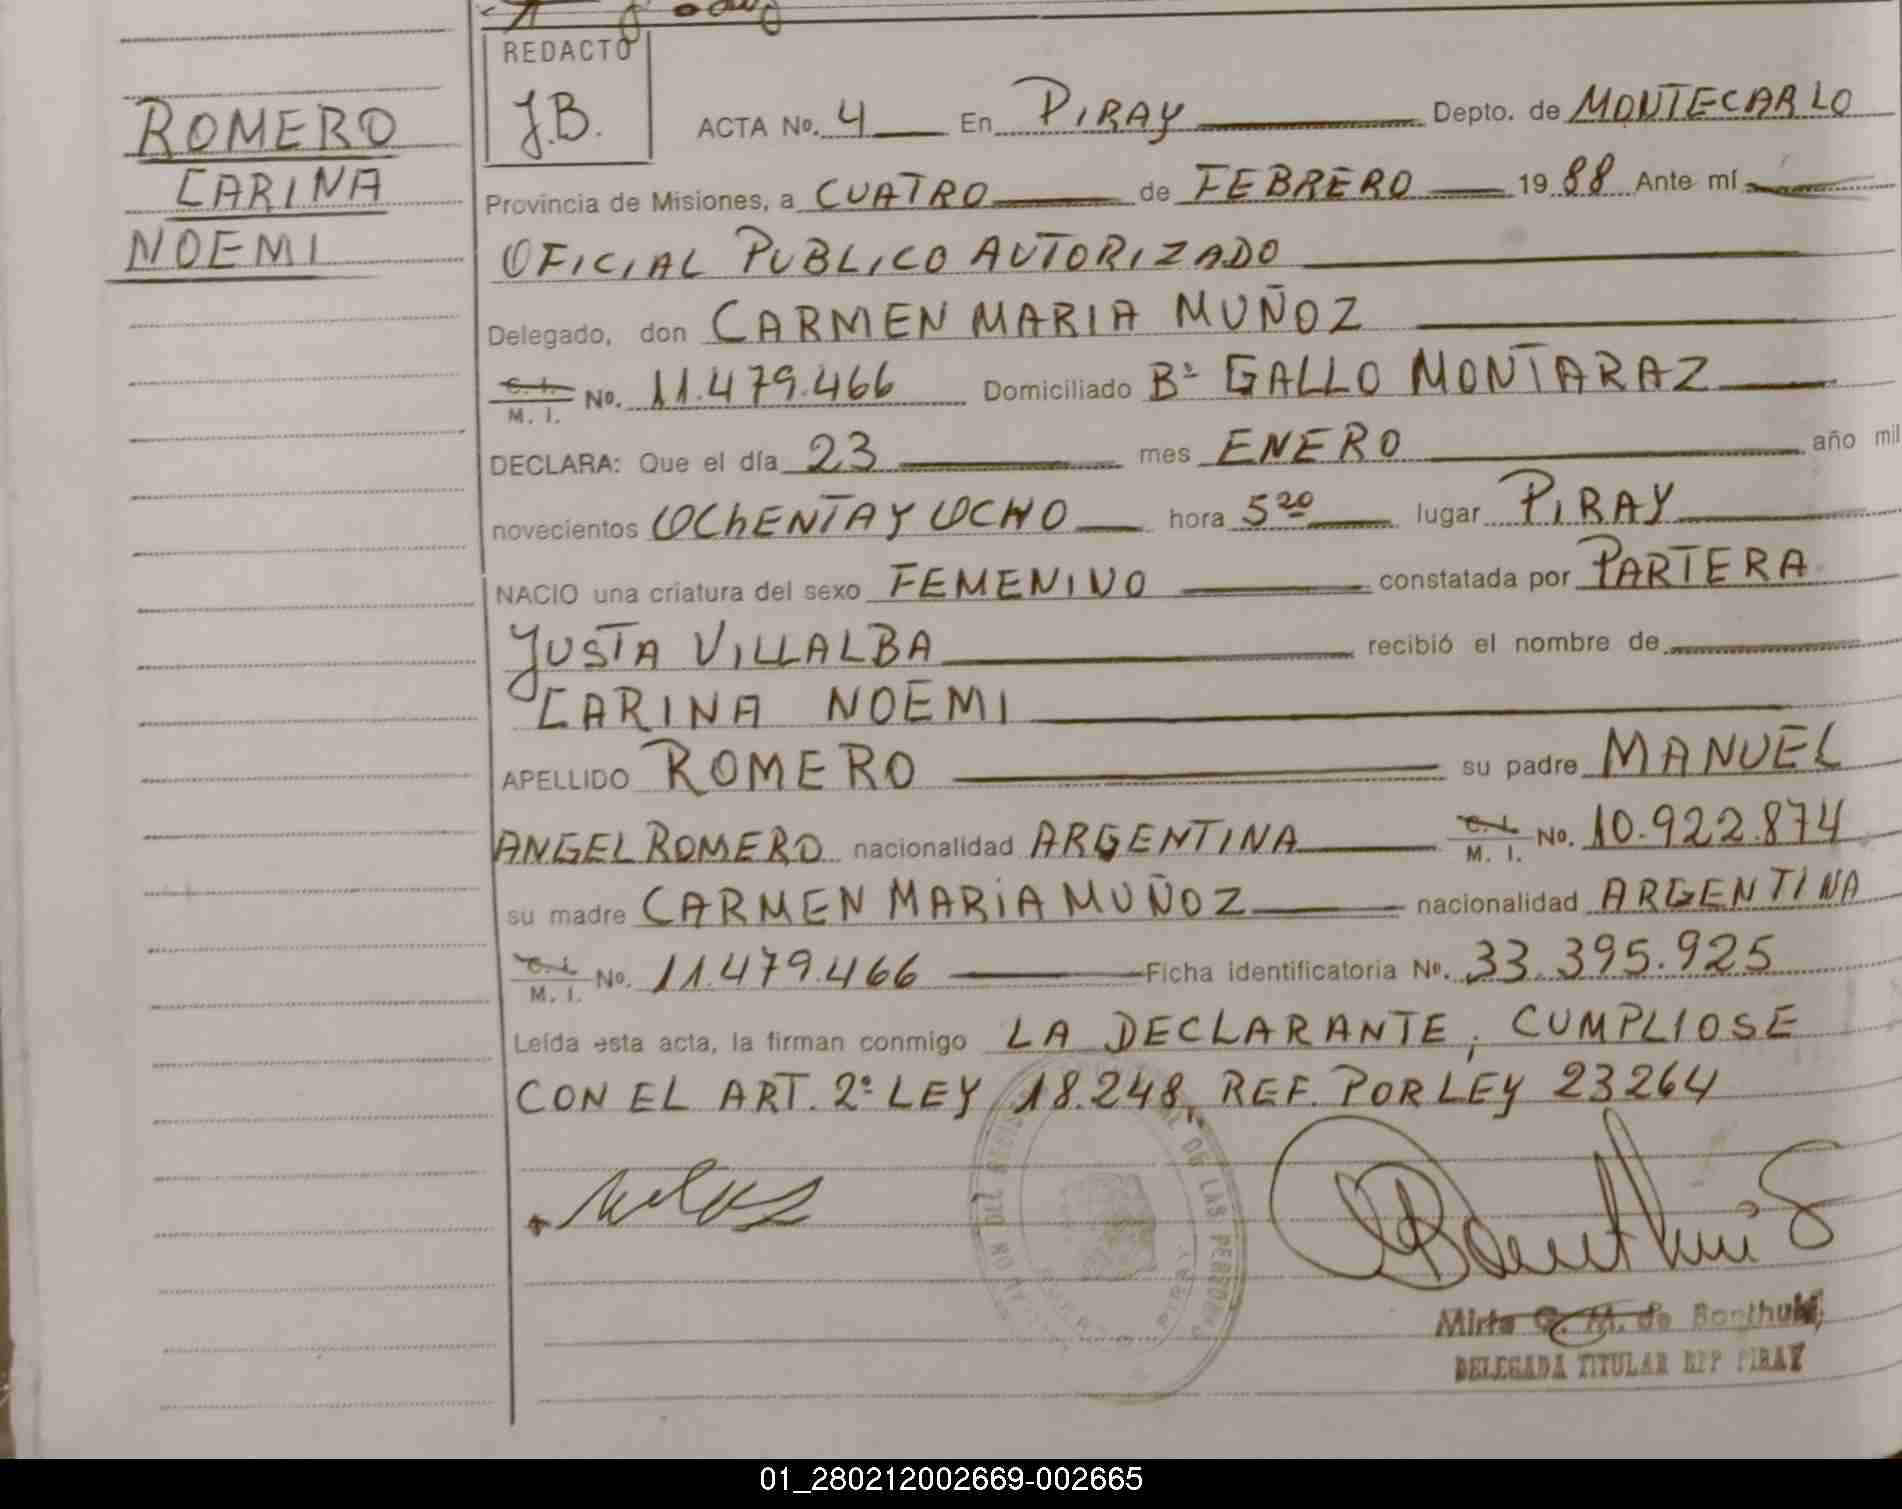 ROMERO
CARINA
NOEMI
REDACTO
J.B.
ACTA No. 4 En PIRAY Depto. de MONTECARLO
Provincia de Misiones, a CUATRO de FEBRERO 19 88 Ante mí
OFICIAL PUBLICO AUTORIZADO
Delegado, don CARMEN MARIA MUÑOZ
C. I.
M. I. No. 11.479.466 Domiciliado Bº GALLO MONTARAZ
DECLARA: Que el día 23 mes ENERO año mil
novecientos OCHENTA Y OCHO hora 5 20 lugar PIRAY
NACIO una criatura del sexo FEMENINO constatada por PARTERA
JUSTA VILLALBA recibió el nombre de
CARINA NOEMI
APELLIDO ROMERO su padre MANUEL
ANGEL ROMERO nacionalidad ARGENTINA C. I. M. I. No. 10.922.874
su madre CARMEN MARIA MUÑOZ nacionalidad ARGENTINA
C. I.
M. I. No. 11.479.466 Ficha identificatoria No. 33.395.925
Leída esta acta, la firman conmigo LA DECLARANTE, CUMPLIOSE
CON EL ART. 2º LEY 18.248, REF. POR LEY 23264
DE LAS PERSONAS
PIRAY
Mirta G. M. de Bonthuis
DELEGADA TITULAR RPP PIRAY
01_280212002669-002665